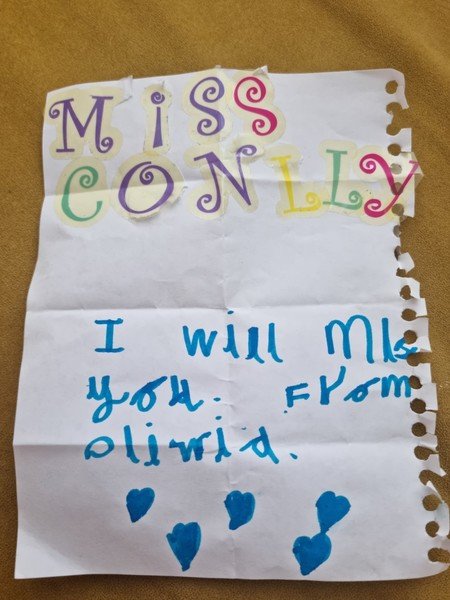 MiSS
CONLLY
I will MIs
you. From
oliwia.